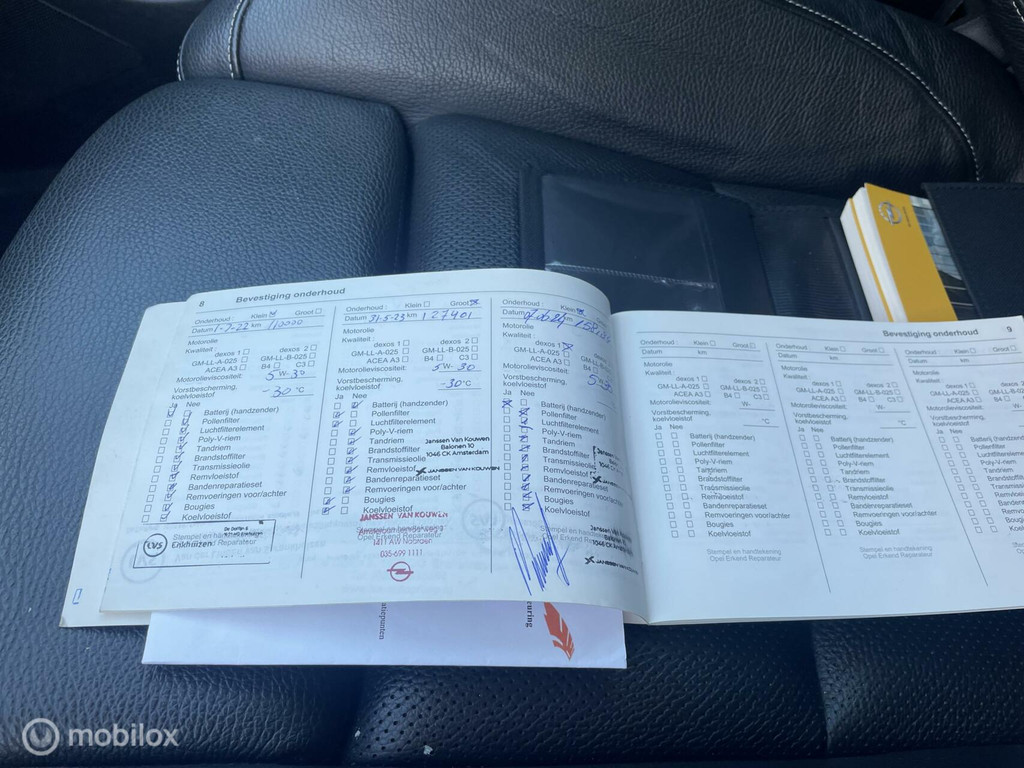 8 Bevestiging onderhoud
Onderhoud : Klein Groot
Datum 1-7-22 km
Motorolie
Kwaliteit :
dexos 1 dexos 2
GM-LL-A-025 GM-LL-B-025
ACEA A3 B4 C3
Motorolieviscositeit: 5W-30
Vorstbescherming,
koelvloeistof -30°C
Ja Nee
Batterij (handzender)
Pollenfilter
Luchtfilterelement
Poly-V-riem
Tandriem
Brandstoffilter
Transmissieolie
Remvloeistof
Bandenreparatieset
Remvoeringen voor/achter
Bougies
Koelvloeistof
Stempel en handtekening
Opel Erkend Reparateur
CVS Enkhuizen
Onderhoud : Klein Groot
Datum 31-5-23 km 127401
Motorolie
Kwaliteit :
dexos 1 dexos 2
GM-LL-A-025 GM-LL-B-025
ACEA A3 B4 C3
Motorolieviscositeit: 5W-30
Vorstbescherming,
koelvloeistof -30°C
Ja Nee
Batterij (handzender)
Pollenfilter
Luchtfilterelement
Poly-V-riem
Tandriem
Brandstoffilter
Transmissieolie
Remvloeistof
Bandenreparatieset
Remvoeringen voor/achter
Bougies
Koelvloeistof
Janssen Van Kouwen
Balonen 10
1046 CK Amsterdam
JANSSEN VAN KOUWEN
JANSSEN VAN KOUWEN
1411 AW Naarden
Opel Erkend Reparateur
035-699 1111
Onderhoud : Klein
Datum km
Motorolie
Kwaliteit :
dexos 1
GM-LL-A-025
ACEA A3
Motorolieviscositeit: 5-30
Vorstbescherming,
koelvloeistof
Ja Nee
Batterij (handzender)
Pollenfilter
Luchtfilterelement
Poly-V-riem
Tandriem
Brandstoffilter
Transmissieolie
Remvloeistof
Bandenreparatieset
Remvoeringen voor/achter
Bougies
Koelvloeistof
Stempel en handtekening
Opel Erkend Reparateur
Bevestiging onderhoud 9
Onderhoud : Klein Groot
Datum km
Motorolie
Kwaliteit :
dexos 1 dexos 2
GM-LL-A-025 GM-LL-B-025
ACEA A3 B4 C3
Motorolieviscositeit: W-
Vorstbescherming,
koelvloeistof °C
Ja Nee
Batterij (handzender)
Pollenfilter
Luchtfilterelement
Poly-V-riem
Tandriem
Brandstoffilter
Transmissieolie
Remvloeistof
Bandenreparatieset
Remvoeringen voor/achter
Bougies
Koelvloeistof
Stempel en handtekening
Opel Erkend Reparateur
Onderhoud : Klein Groot
Datum km
Motorolie
Kwaliteit :
dexos 1 dexos 2
GM-LL-A-025 GM-LL-B-025
ACEA A3 B4 C3
Motorolieviscositeit: W-
Vorstbescherming,
koelvloeistof °C
Ja Nee
Batterij (handzender)
Pollenfilter
Luchtfilterelement
Poly-V-riem
Tandriem
Brandstoffilter
Transmissieolie
Remvloeistof
Bandenreparatieset
Remvoeringen voor/achter
Bougies
Koelvloeistof
Stempel en handtekening
Opel Erkend Reparateur
Onderhoud : Klein
Datum km
Motorolie
Kwaliteit :
dexos 1
GM-LL-A-025
ACEA A3
Vorstbescherming,
koelvloeistof
Ja Nee
mobilox